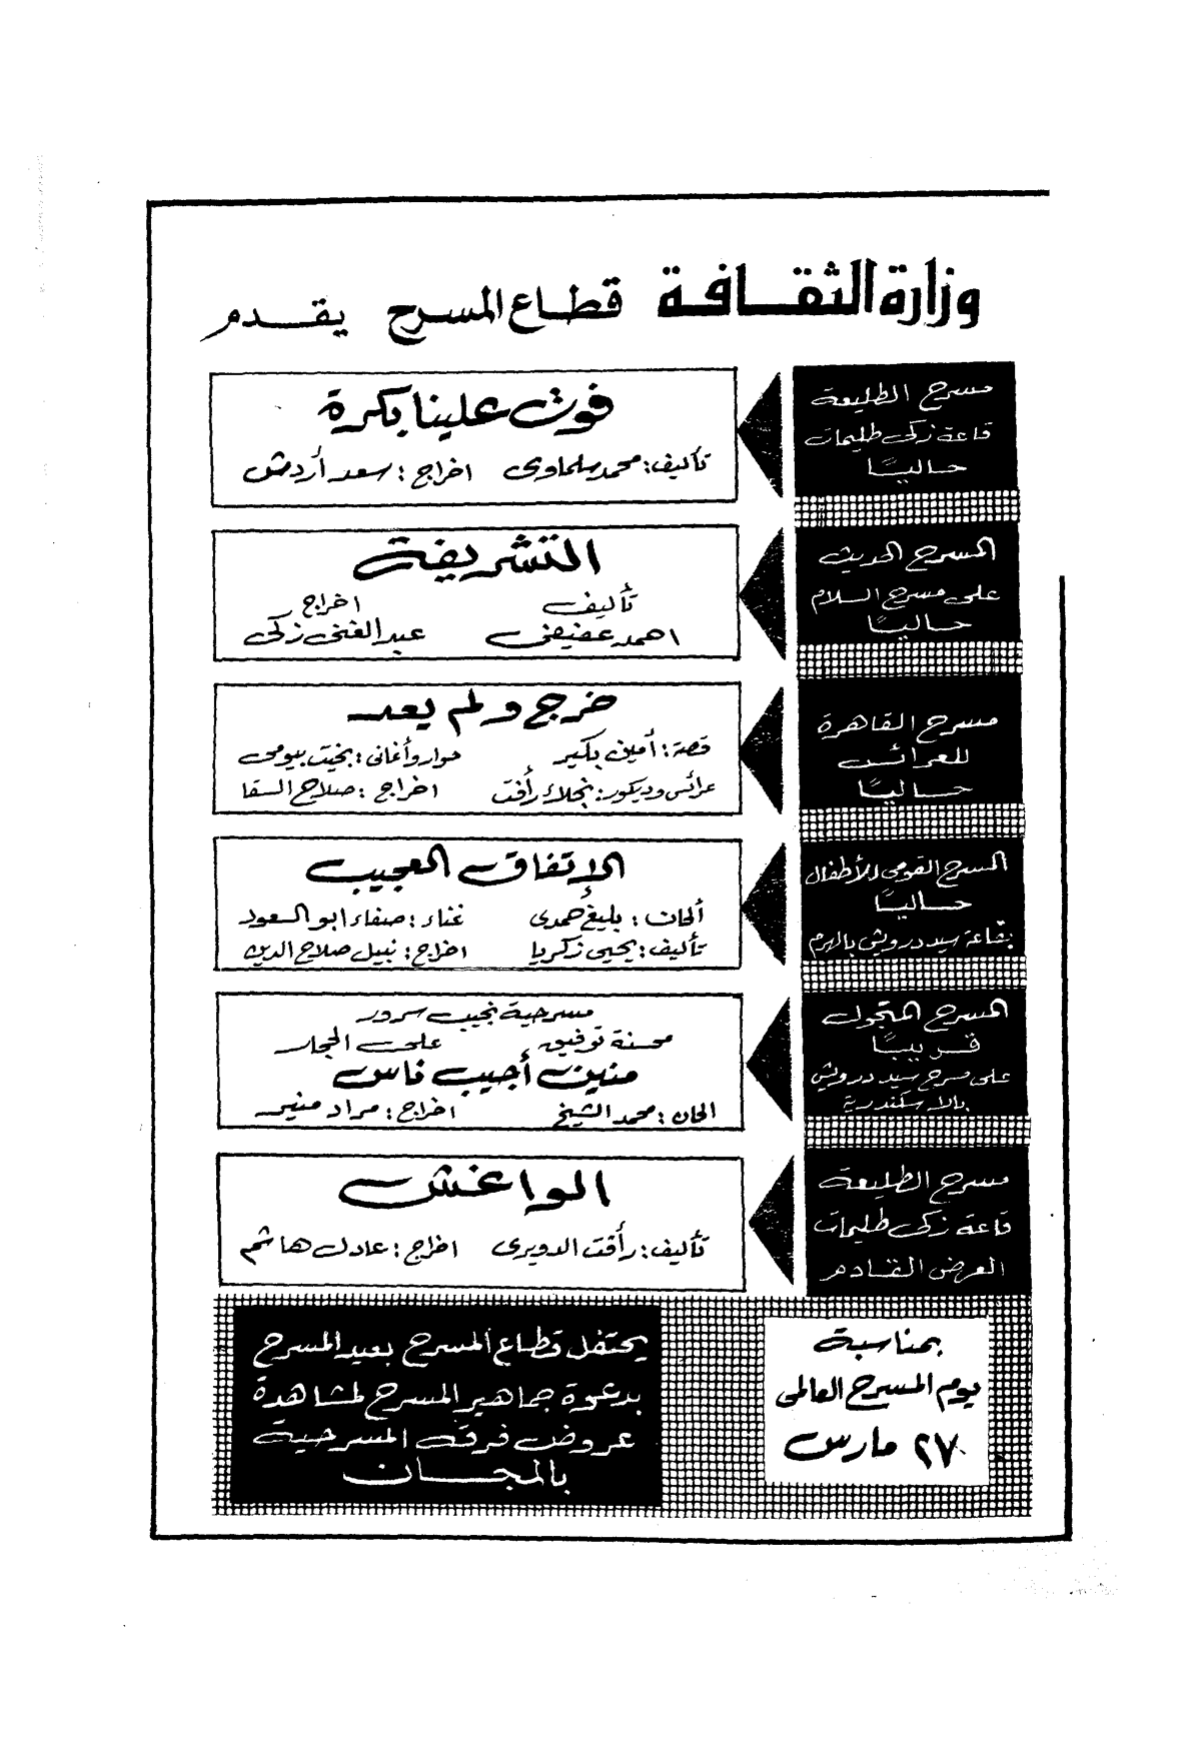 وزارة الثقافة قطاع المسرح يقدم
مسرح الطليعة
قاعة زكى طليمات
حاليًا
فوت علينا بكرة
تأليف: محمد سلماوى اخراج: سعد أردش
المسرح الحديث
على مسرح السلام
حاليًا
التشريفة
تأليف اخراج
احمد عفيفى عبد الغنى زكى
مسرح القاهرة
للعرائس
حاليًا
خرج ولم يعد
قصة: أمين بكير حوار وأغانى: بخيت بيومى
عرائس وديكور: نجلاء رأفت اخراج: صلاح السقا
المسرح القومى للأطفال
حاليًا
بقاعة سيد درويش بالهرم
الإتفاق العجيب
ألحان: بليغ حمدى غناء: صفاء ابو السعود
تأليف: يحيى زكريا اخراج: نبيل صلاح الدين
المسرح المتجول
قريبًا
على مسرح سيد درويش
بالاسكندرية
مسرحية نجيب سرور
محسنة توفيق على الحجار
منين أجيب ناس
الحان: محمد الشيخ اخراج: مراد منير
مسرح الطليعة
قاعة زكى طليمات
العرض القادم
الواغش
تأليف: رأفت الدويرى اخراج: عادل هاشم
بمناسبة
يوم المسرح العالمى
٢٧ مارس
يحتفل قطاع المسرح بعيد المسرح
بدعوة جماهير المسرح لمشاهدة
عروض فرقه المسرحية
بالمجان